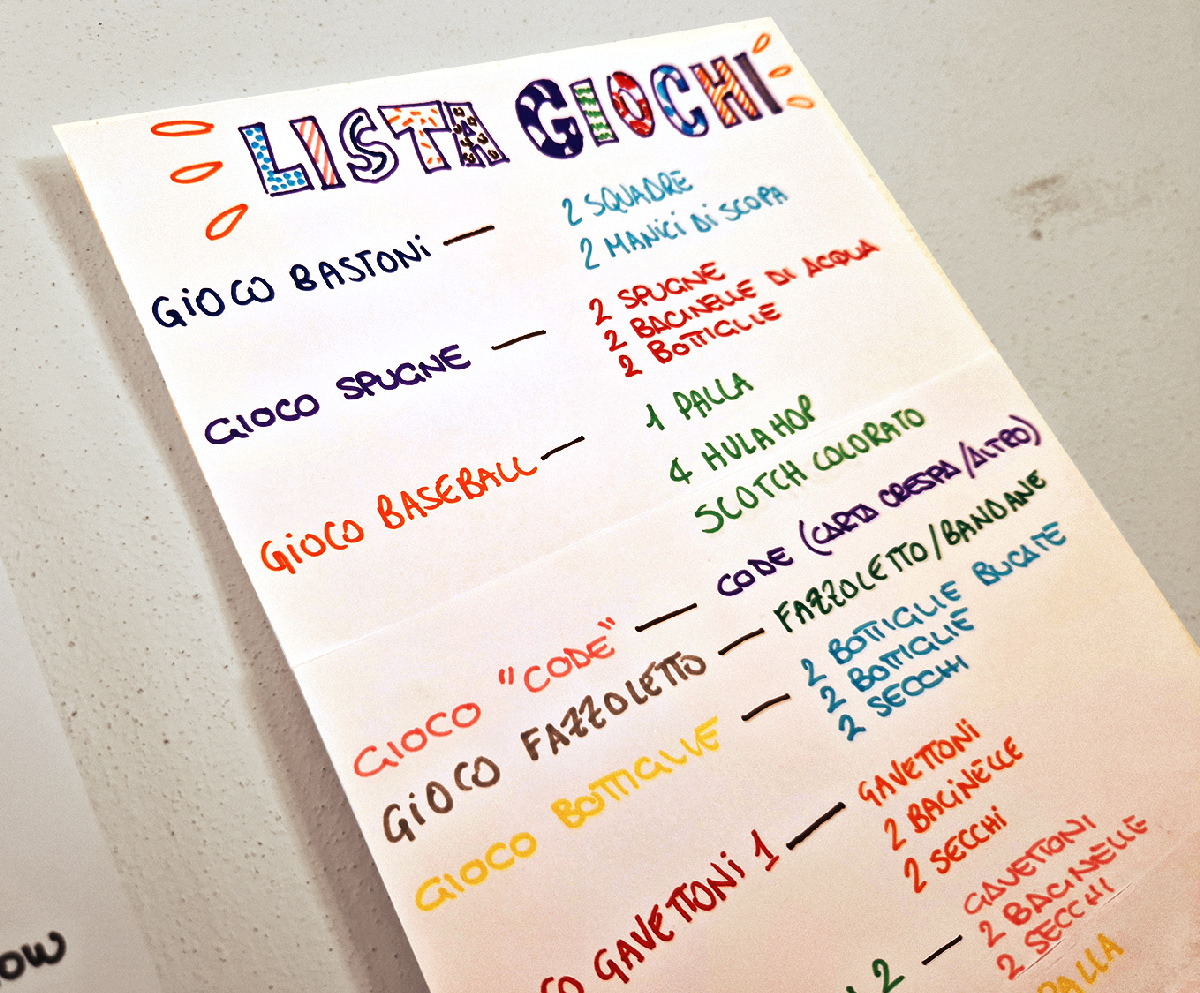 LISTA GIOCHI
GIOCO BASTONI — 2 SQUADRE
2 MANICI DI SCOPA
GIOCO SPUGNE — 2 SPUGNE
2 BACINELLE DI ACQUA
2 BOTTIGLIE
GIOCO BASEBALL — 1 PALLA
4 HULAHOP
SCOTCH COLORATO
GIOCO "CODE" — CODE (CARTA CRESPA/ALTRO)
GIOCO FAZZOLETTO — FAZZOLETTO/BANDANE
GIOCO BOTTIGLIE — 2 BOTTIGLIE BUCATE
2 BOTTIGLIE
2 SECCHI
CO GAVETTONI 1 — GAVETTONI
2 BACINELLE
2 SECCHI
2 — GAVETTONI
2 BACINELLE
2 SECCHI
PALLA
ow